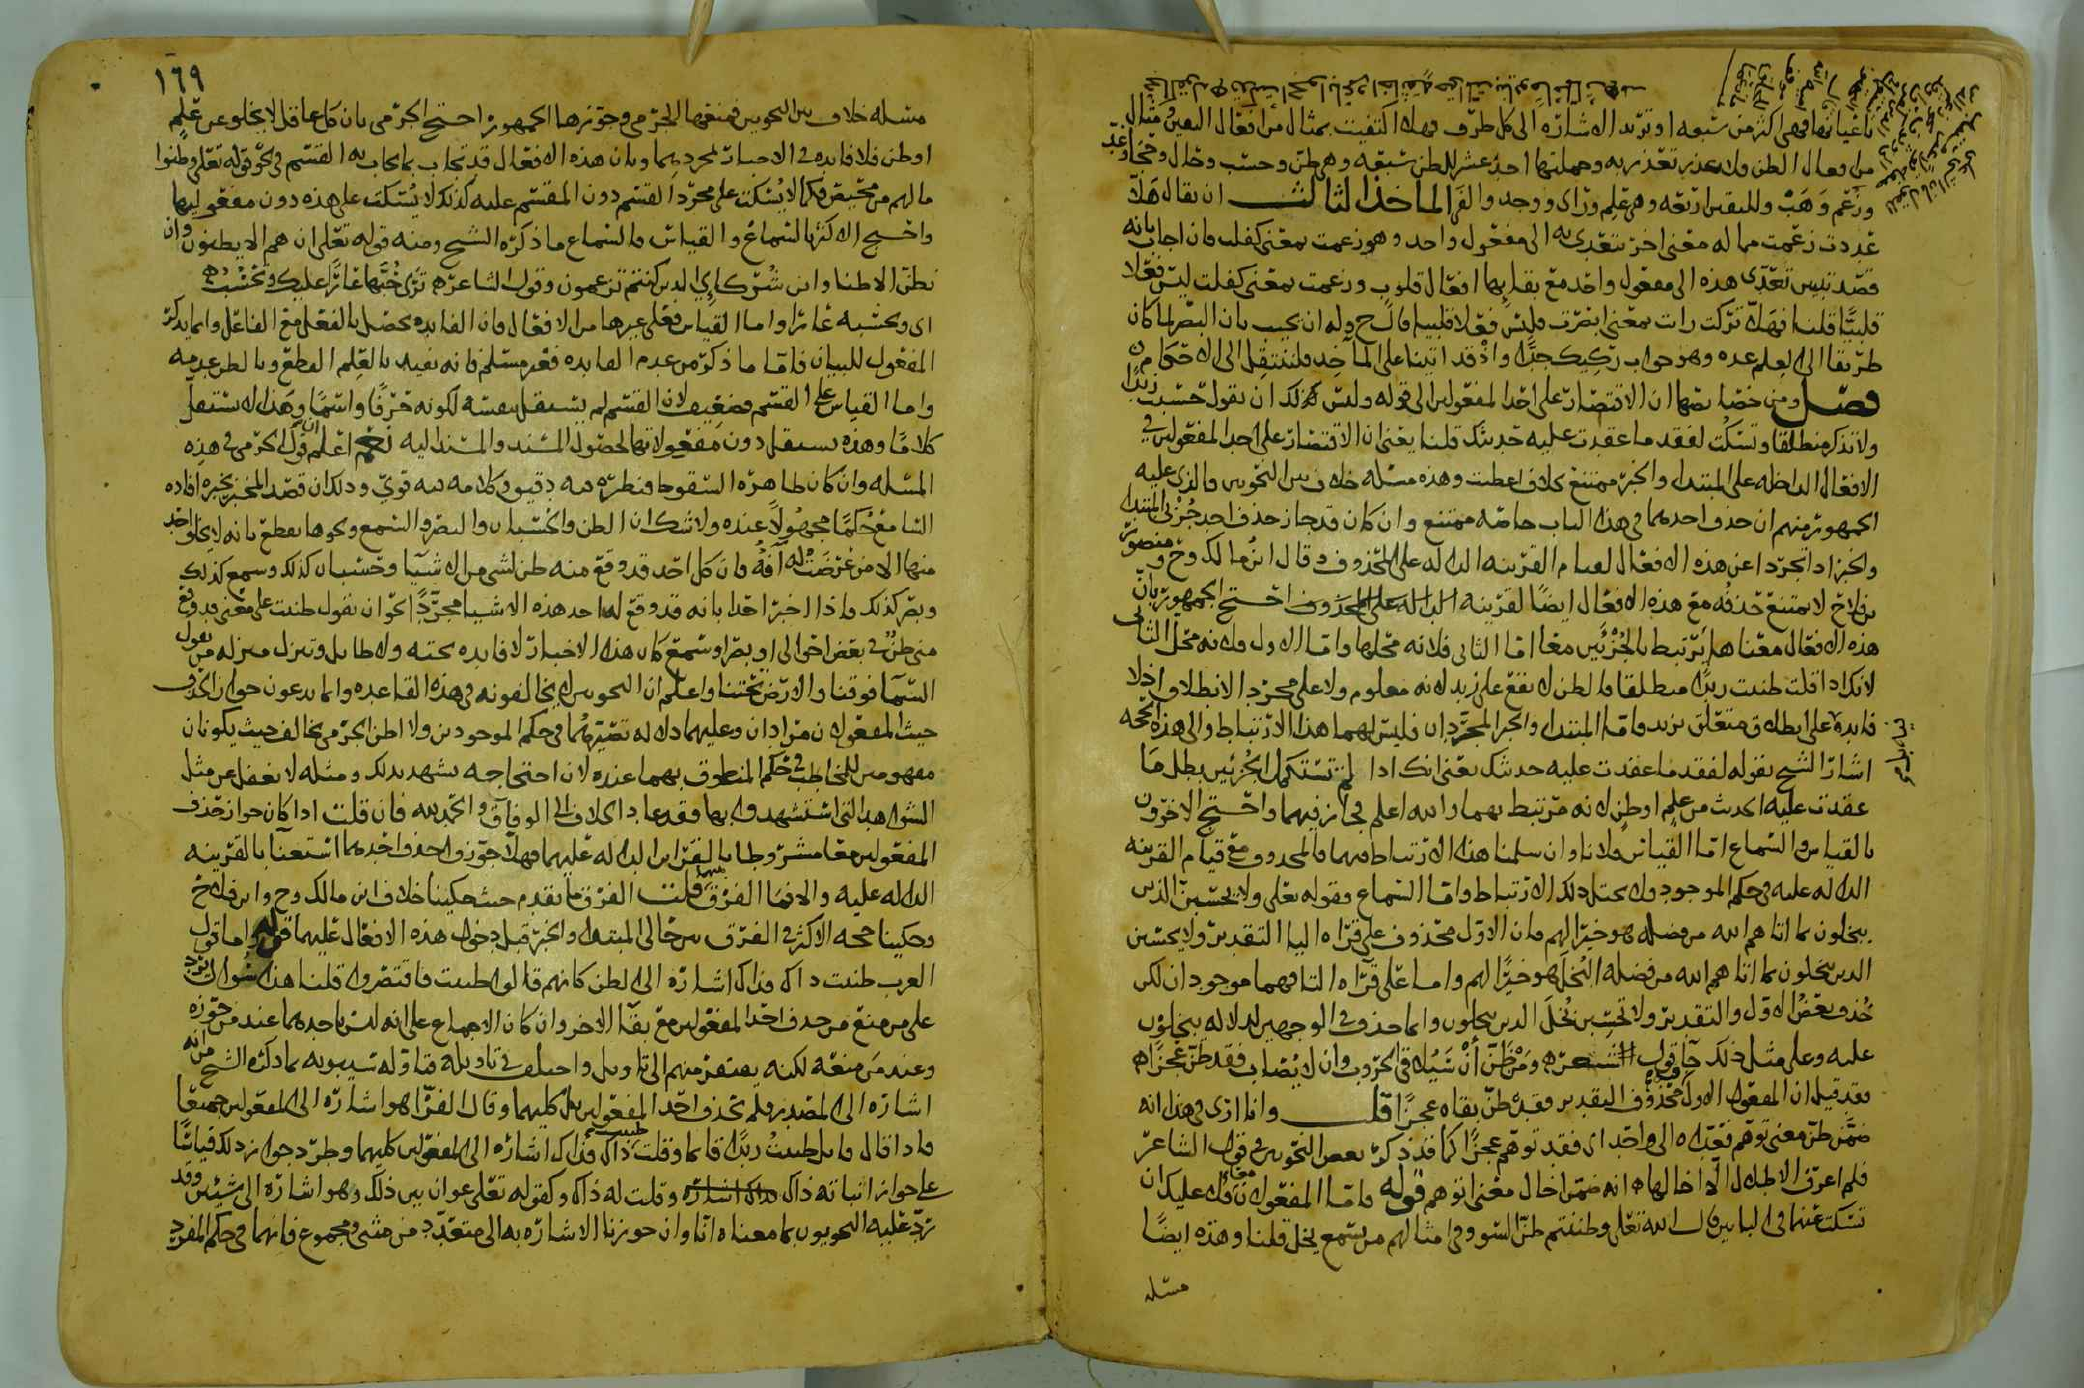 باغيانها فهي اكثر من سبعه او تريد الاشاره الى كل طرف فهلا اكتفيت بمثال من افعال اليقين ومثال
من افعال الظن ولا عذر تعتذر به وجملتها احد عشر للظن سبعه وهي ظن وحسب وخال وحجا وعد
وزعم وهب ولليقين اربعه وهي علم وراى ووجد والفى الماخذ الثالث ان يقال هلا
عددت زعمت مما له معنى اخر تتعدى به الى مفعول واحد وهو زعمت بمعنى كفلت فان اجاب بانه
قصد تبيين تعدى هذه الى مفعول واحد مع بقايها افعال قلوب وزعمت بمعنى كفلت ليس فعلا
قلبيا قلنا فهلا تركت رات بمعنى ابصرت فليس فعلا قلبيا قال ح وله ان يجيب بان البصر لما كان
طريقا الى العلم عده وهو جواب ركيك جدا واذ قد اتينا على الماخذ فلننتقل الى الاحكام
فصل ومن خصايصها ان الاقتصار على احد المفعولين الى قوله وليس كذلك ان تقول حسبت زيدا
ولا تذكر منطلقا وتسكت لفقد ما عقدت عليه حديثك قلنا يعني ان الاقتصار على احد المفعولين في
الافعال الداخله على المبتدا والخبر ممتنع بخلاف اعطيت وهذه مسئله خلاف بين النحويين فالذي عليه
الجمهور منهم ان حذف احدهما في هذا الباب خاصه ممتنع وان كان قد جاز حذف احد جزئي المبتدا
والخبر اذا تجردا عن هذه الافعال لقيام القرينه الداله على المحذوف وقال ابن مالك وح ومنصور
بن فلاح لا يمتنع حذفه مع هذه الافعال ايضا لقرينه الداله على المحذوف احتج الجمهور بان
هذه الافعال معناها يرتبط بالجزئين معا اما الثاني فلانه محلها واما الاول فلانه محل الثاني
لانك اذا قلت ظننت زيدا منطلقا فالظن لا يقع على زيد لانه معلوم ولا على مجرد الانطلاق اذ لا
فايده على انطلاق متعلق بزيد واما المبتدا والخبر المجردان فليس لهما هذا الارتباط والى هذه الحجه
اشار الشيخ بقوله لفقد ما عقدت عليه حديثك يعني انك اذا لم تستكمل الجزئين بطل ما
عقدت عليه الحديث من علم او ظن لانه مرتبط بهما والله اعلم فجاز فيهما واحتج الاخرون
بالقياس والسماع اما القياس فلانا وان سلمنا هذا الارتباط فيهما فالمحذوف مع قيام القرينه
الداله عليه في حكم الموجود ولا يختل ذلك الارتباط واما السماع فقوله تعلى ولا يحسبن الذين
يبخلون بما اتاهم الله من فضله هو خيرا لهم فان الاول محذوف على قراه اليا التقدير ولا يحسبن
الذين يبخلون بما اتاهم الله من فضله البخل هو خيرا لهم واما على قراه التا فهما موجودان لكن
حذف بعض الاول والتقدير ولا تحسبن بخل الذين يبخلون وانما حذف في الوجهين لدلاله يبخلون
عليه وعلى مثل ذلك جا قول الشعر ومن ظن ان سيلاقي الحروب وان لا يصاب فقد ظن عجزا
فقد قيل ان المفعول الاول محذوف التقدير فقد ظن بقاه عجزا قلت وانا ارى في هذا انه
ضمن ظن معنى توهم فعداه الى واحد اى فقد توهم عجزا كما قد ذكر بعض النحويين في قول الشاعر
فلم اعرف الاطلال الا اخالها انه ضمن اخال معنى اتوهم قوله فاما المفعولان معا فلا عليك ان
تسكت عنهما في البابين قال الله تعلى وظننتم ظن السو وفي امثالهم من يسمع يخل قلنا وهذه ايضا
مسئله
١٦٩
مسئله خلاف بين النحويين فمنعها الجرمي وجوزها الجمهور احتج الجرمي بان كل عاقل لا يخلو عن علم
او ظن فلا فايده في الاخبار بمجردهما وبان هذه الافعال قد تجاب بما يجاب به القسم في نحو قوله تعلى وظنوا
ما لهم من محيص فكما لا يسكت على مجرد القسم دون المقسم عليه كذلك لا يسكت على هذه دون مفعوليها
واحتج الاكثر بالسماع والقياس فالسماع ما ذكره الشيخ ومنه قوله تعلى ان هم الا يظنون وان
نظن الا ظنا واين شركاءى الذين كنتم تزعمون وقول الشاعر ترى حبهم عارا عليك وتحسب
اى وتحسبه عارا واما القياس فعلى غيرها من الافعال فان الفايده تحصل بالفعل مع الفاعل وانما يذكر
المفعول للبيان فاما ما ذكر من عدم الفايده فغير مسلم فانه يفيد بالعلم القطع وبالظن عدمه
واما القياس على القسم فضعيف لان القسم لم يستقل بنفسه لكونه حرفا واسما وهذا لا يستقل
كلاما وهذه تستقل دون مفعولاتها لحصول المسند والمسند اليه نعم اعلم ان قول الجرمي في هذه
المسئله وان كان ظاهره السقوط فنظره فيه دقيق وكلامه فيه قوى وذلك ان قصد المخبر بخبره افاده
السامع حكما مجهولا عنده ولا شك ان الظن والحسبان والبصر والسمع ونحوها يقطع بانه لا يخلو احد
منها الا من عرضت له آفه فان كل احد قد وقع منه ظن لشي من الاشيا وحسبان كذلك وسمع كذلك
وبصر كذلك فاذا اخبر احدا بانه قد وقع له احد هذه الاشيا مجردا نحو ان يقول ظننت على معنى قد وقع
مني ظن في بعض احوالى او بصر او سمع كان هذا الاخبار لا فايده تحته ولا طايل وتنزل منزله من يقول
السما فوقنا والارض تحتنا واعلم ان النحويين لا يخالفونه في هذه القاعده وانما يدعون جواز الحذف
حيث المفعولان مرادان وعليهما دلاله تصيرهما في حكم الموجودين ولا اظن الجرمي يخالف حيث يكونان
مفهومين للمخاطب في حكم المنطوق بهما عنده لان احتجاجه يشهد بذلك ومثله لا يغفل عن مثل
الشواهد التي استشهدوا بها وقد عاد الخلاف الى الوفاق والحمد لله فان قلت اذا كان جواز حذف
المفعولين معا مشروطا بالقراين الداله عليهما فهلا جوزوا حذف احدهما استغنا بالقرينه
الداله عليه والا فما الفرق بينهما قلت الفرق ما تقدم حيث حكينا خلاف ابن مالك وح وابن فلاح
وحكينا حجه الاكثر في الفرق بين حالى المبتدا والخبر قبل دخول هذه الافعال عليهما قوله واما قول
العرب ظننت ذاك فذاك اشاره الى الظن كانهم قالوا ظننت فاقتصروا قلنا هذا سوال يرد
على من منع من حذف احد المفعولين مع بقا الاخر وان كان الاجماع على انه ليس باحدهما عند من جوزه
وعند من منعه لكنه يفتقر منهم الى تاويل واختلف في تاويله فتاوله سيبويه بما ذكره الشيخ من انه
اشاره الى المصدر فلم تحذف احد المفعولين بل كليهما وقال الفرا هو اشاره الى المفعولين جميعا
فاذا قال قايل ظننت زيدا قايما وقلت ظننت ذاك فذاك اشاره الى المفعولين كليهما وطرد جواز ذلك قياسا
على جواز اتيانه ذاك وقلت له ذاك وكقوله تعلى عوان بين ذلك وهو اشاره الى شيئين وقد
رد عليه النحويون بما معناه انا وان جوزنا الاشاره به الى متعدد من مثنى ومجموع فانهما في حكم المفرد